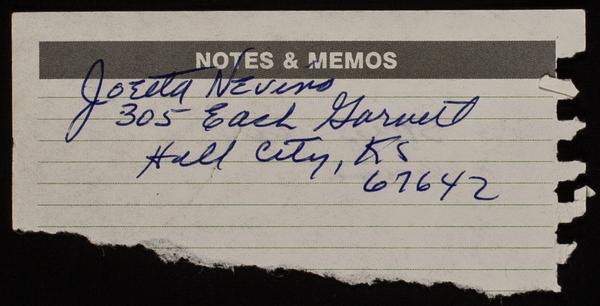 NOTES & MEMOS
Joetta Nevins
305 Each Garnett
Hill City, KS
67642